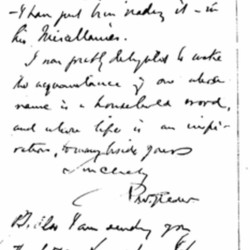 - I have just been reading it - in
his Miscellanies.
I am greatly delighted to make
the acquaintance of one whose
name is a household word,
and whose life is an inspi-
ration, to many beside yours
Sincerely
I am sending you